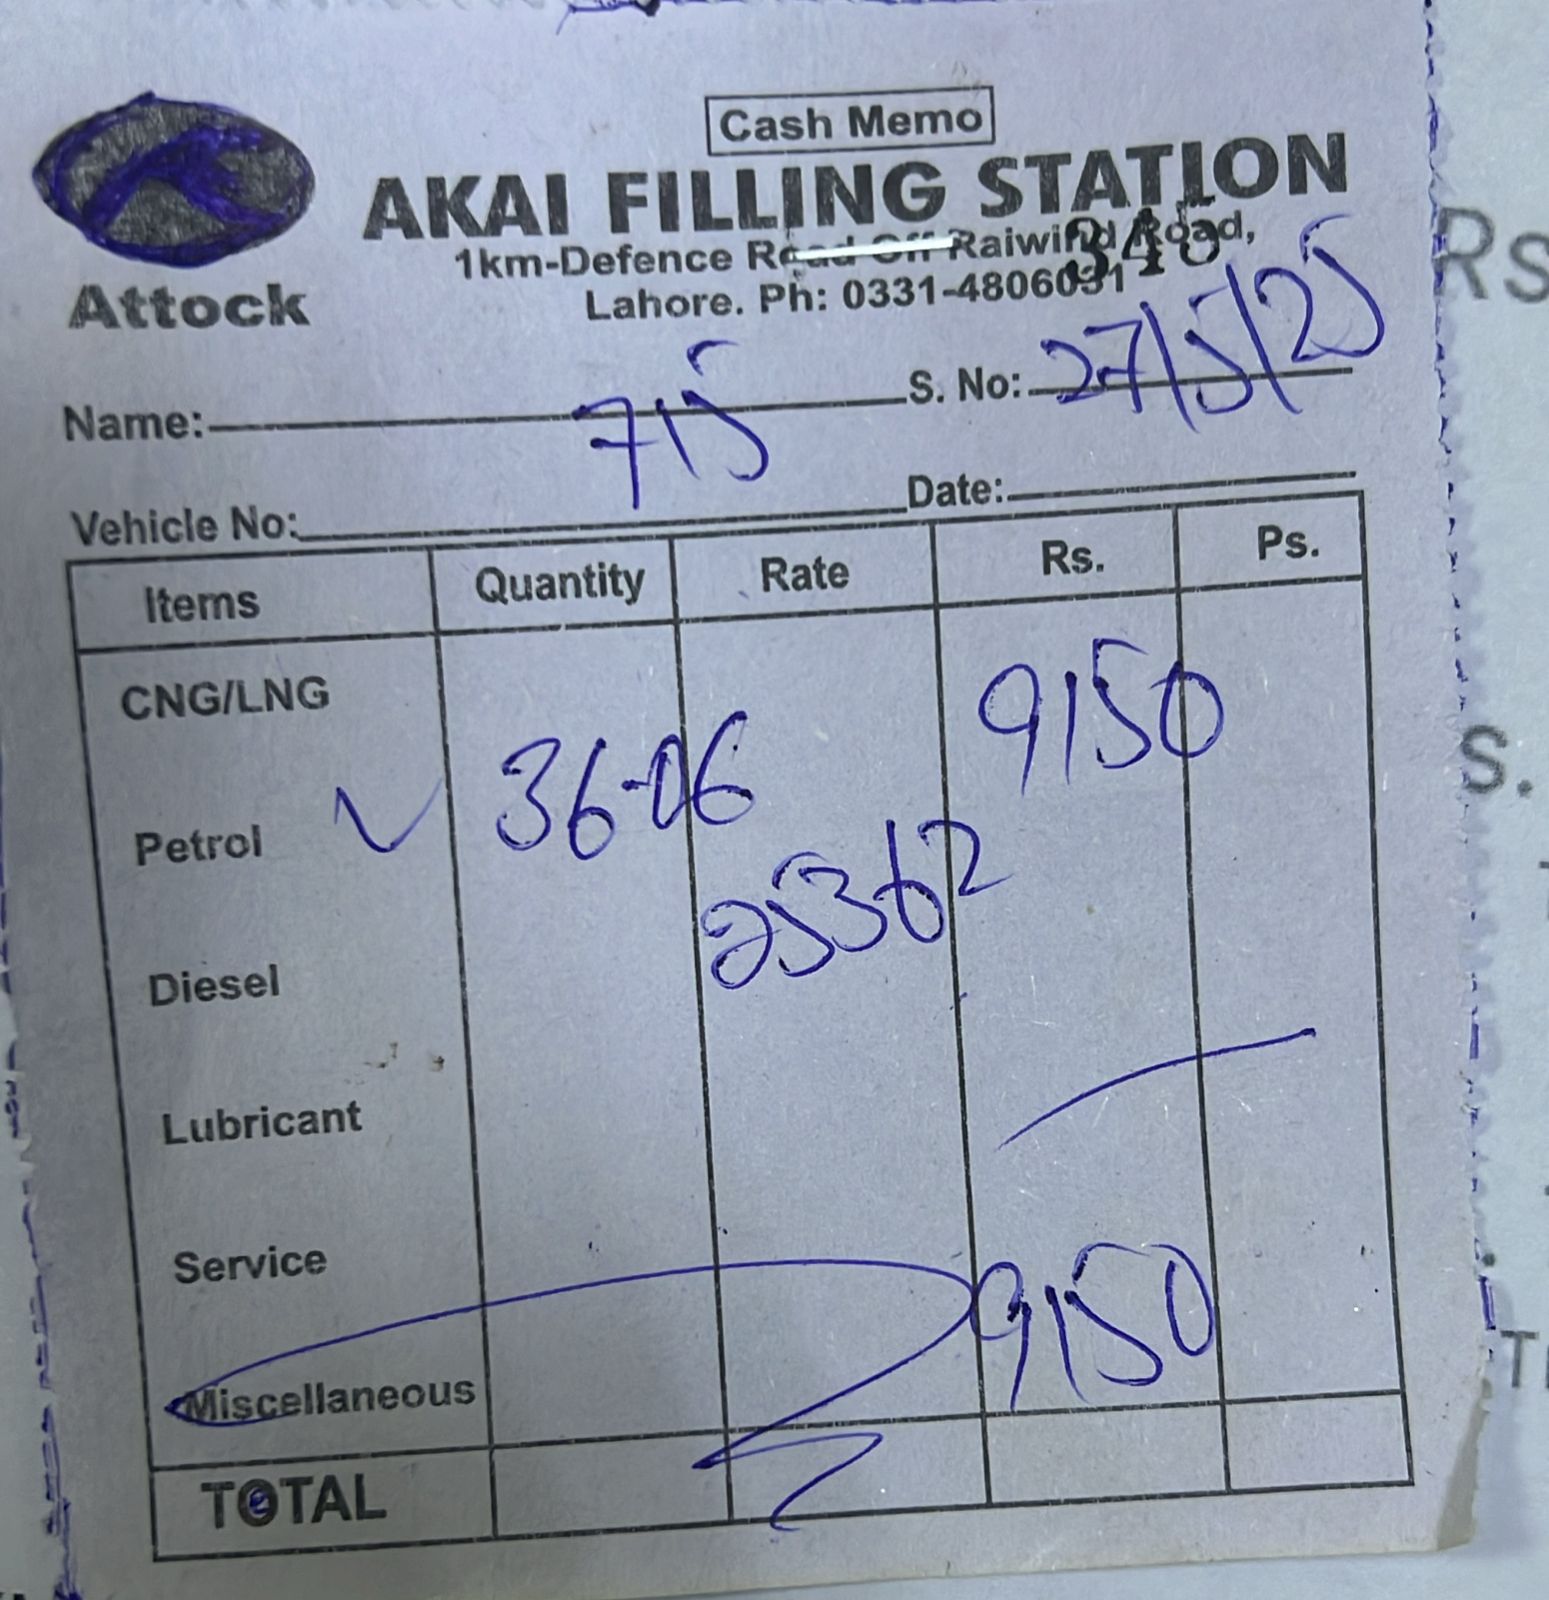 Cash Memo
AKAI FILLING STATION
1km-Defence Road Off Raiwind Road,
Lahore. Ph: 0331-4806031
348
Attock
Name: 715 S. No: 27/5/25
Vehicle No: Date:
Items Quantity Rate Rs. Ps.
CNG/LNG 9150
Petrol 36-06
25362
Diesel
Lubricant
Service
Miscellaneous 9150
TOTAL
Rs
S.